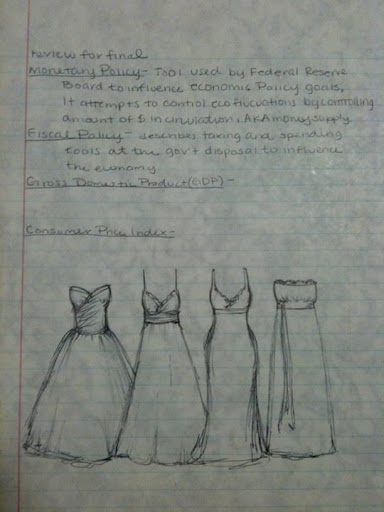 review for final
Monetary Policy- Tool used by Federal Reserve
Board to influence economic Policy goals,
It attempts to control eco flucuations by controlling
amount of $ in circulation. AKA money supply.
Fiscal Policy- describes taxing and spending
tools at the gov't disposal to influence
the economy.
Gross Domestic Product (GDP)-
Consumer Price Index-